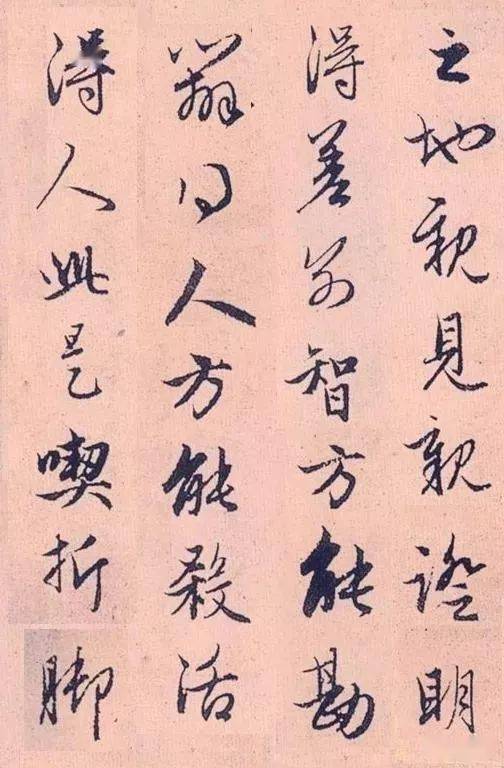 之地親見親證明
得差別智方能勘
辨同人方能殺活
得人此是喫折脚